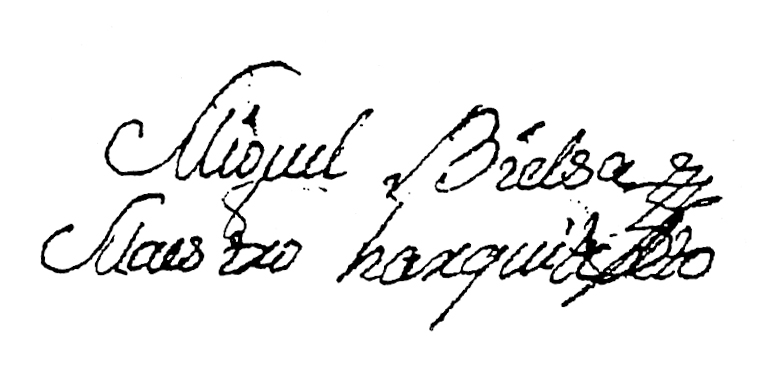 Miguel Bielsa
Maestro harquitecto